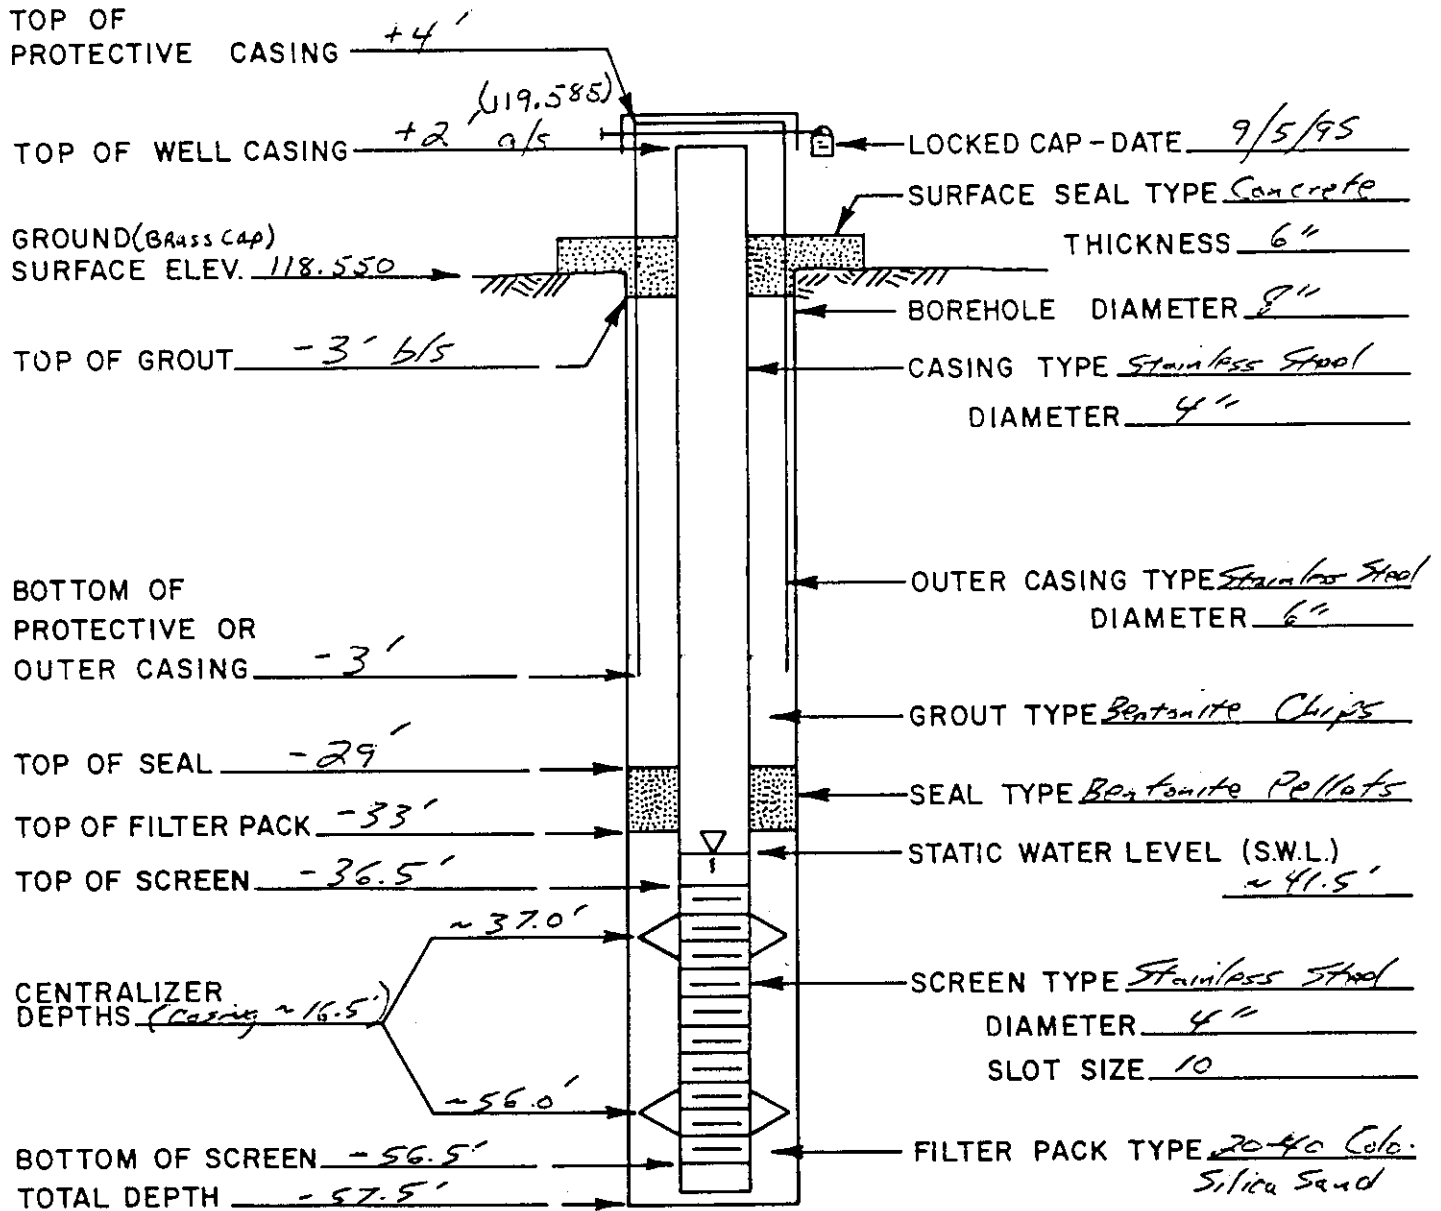 TOP OF
PROTECTIVE CASING +4'
TOP OF WELL CASING +2' a/s (119.585)
GROUND (Brass Cap)
SURFACE ELEV. 118.550
TOP OF GROUT -3' b/s
BOTTOM OF
PROTECTIVE OR
OUTER CASING -3'
TOP OF SEAL -29'
TOP OF FILTER PACK -33'
TOP OF SCREEN -36.5'
~37.0'
CENTRALIZER
DEPTHS (casing ~16.5')
~56.0'
BOTTOM OF SCREEN -56.5'
TOTAL DEPTH -57.5'
LOCKED CAP - DATE 9/5/95
SURFACE SEAL TYPE Concrete
THICKNESS 6"
BOREHOLE DIAMETER 8"
CASING TYPE Stainless Steel
DIAMETER 4"
OUTER CASING TYPE Stainless Steel
DIAMETER 6"
GROUT TYPE Bentonite Chips
SEAL TYPE Bentonite Pellets
STATIC WATER LEVEL (S.W.L.)
~41.5'
SCREEN TYPE Stainless Steel
DIAMETER 4"
SLOT SIZE 10
FILTER PACK TYPE 20-40 Colo.
Silica Sand